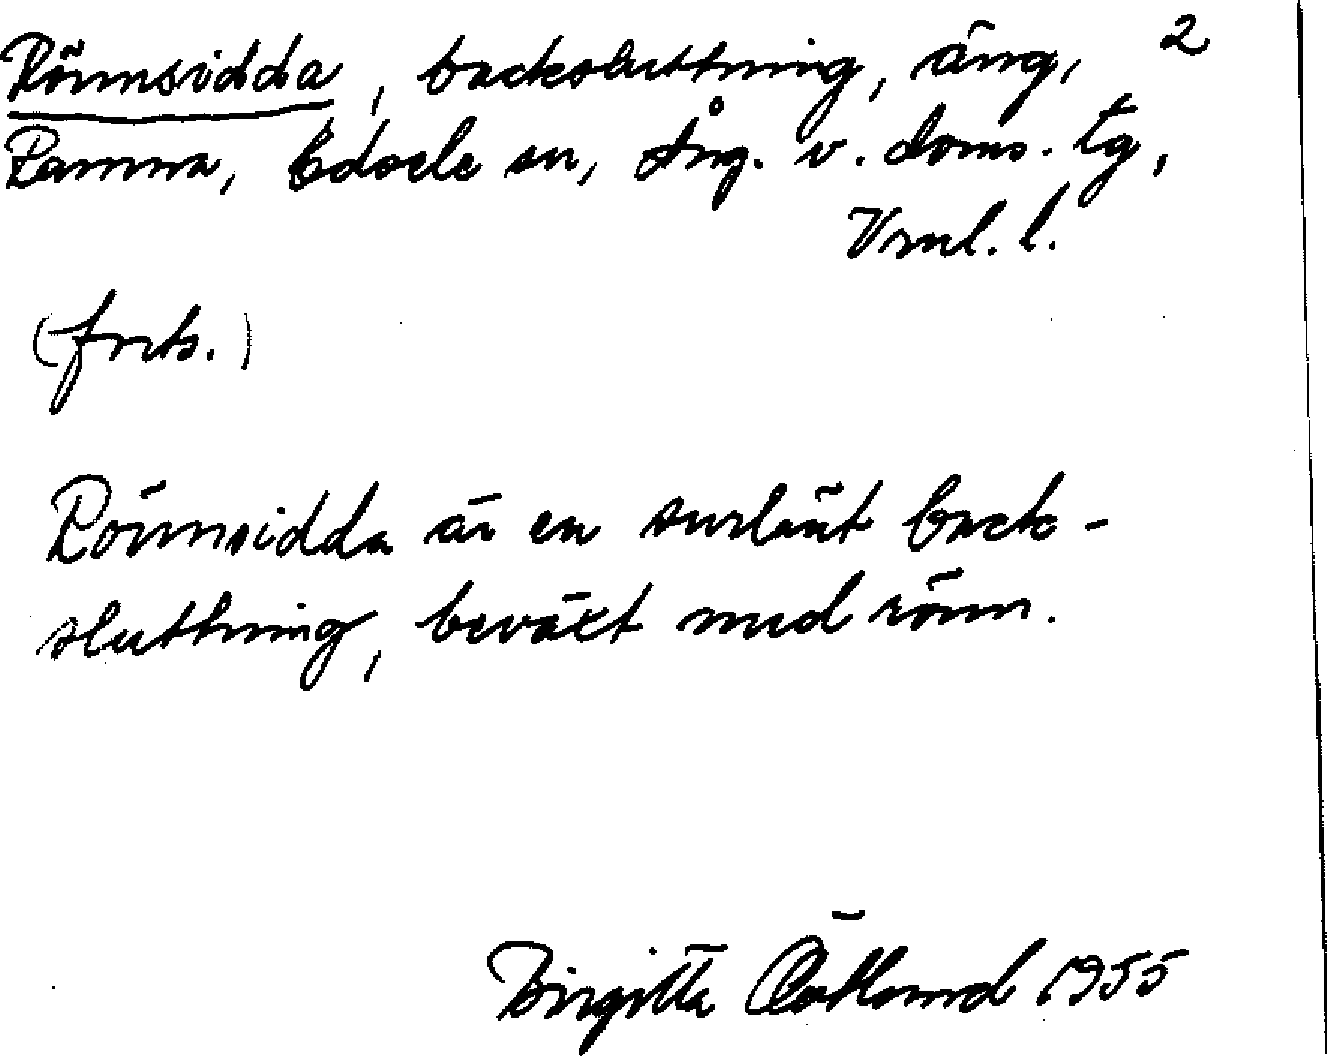 Rönnsidda, backsluttning, äng, 2
Ramna, Edsele sn, Ång. v. doms. tg,
Vnl. l.
(forts.)
Rönnsidda är en surlänt back-
sluttning, beväxt med rönn.
Birgitta Östlund 1955